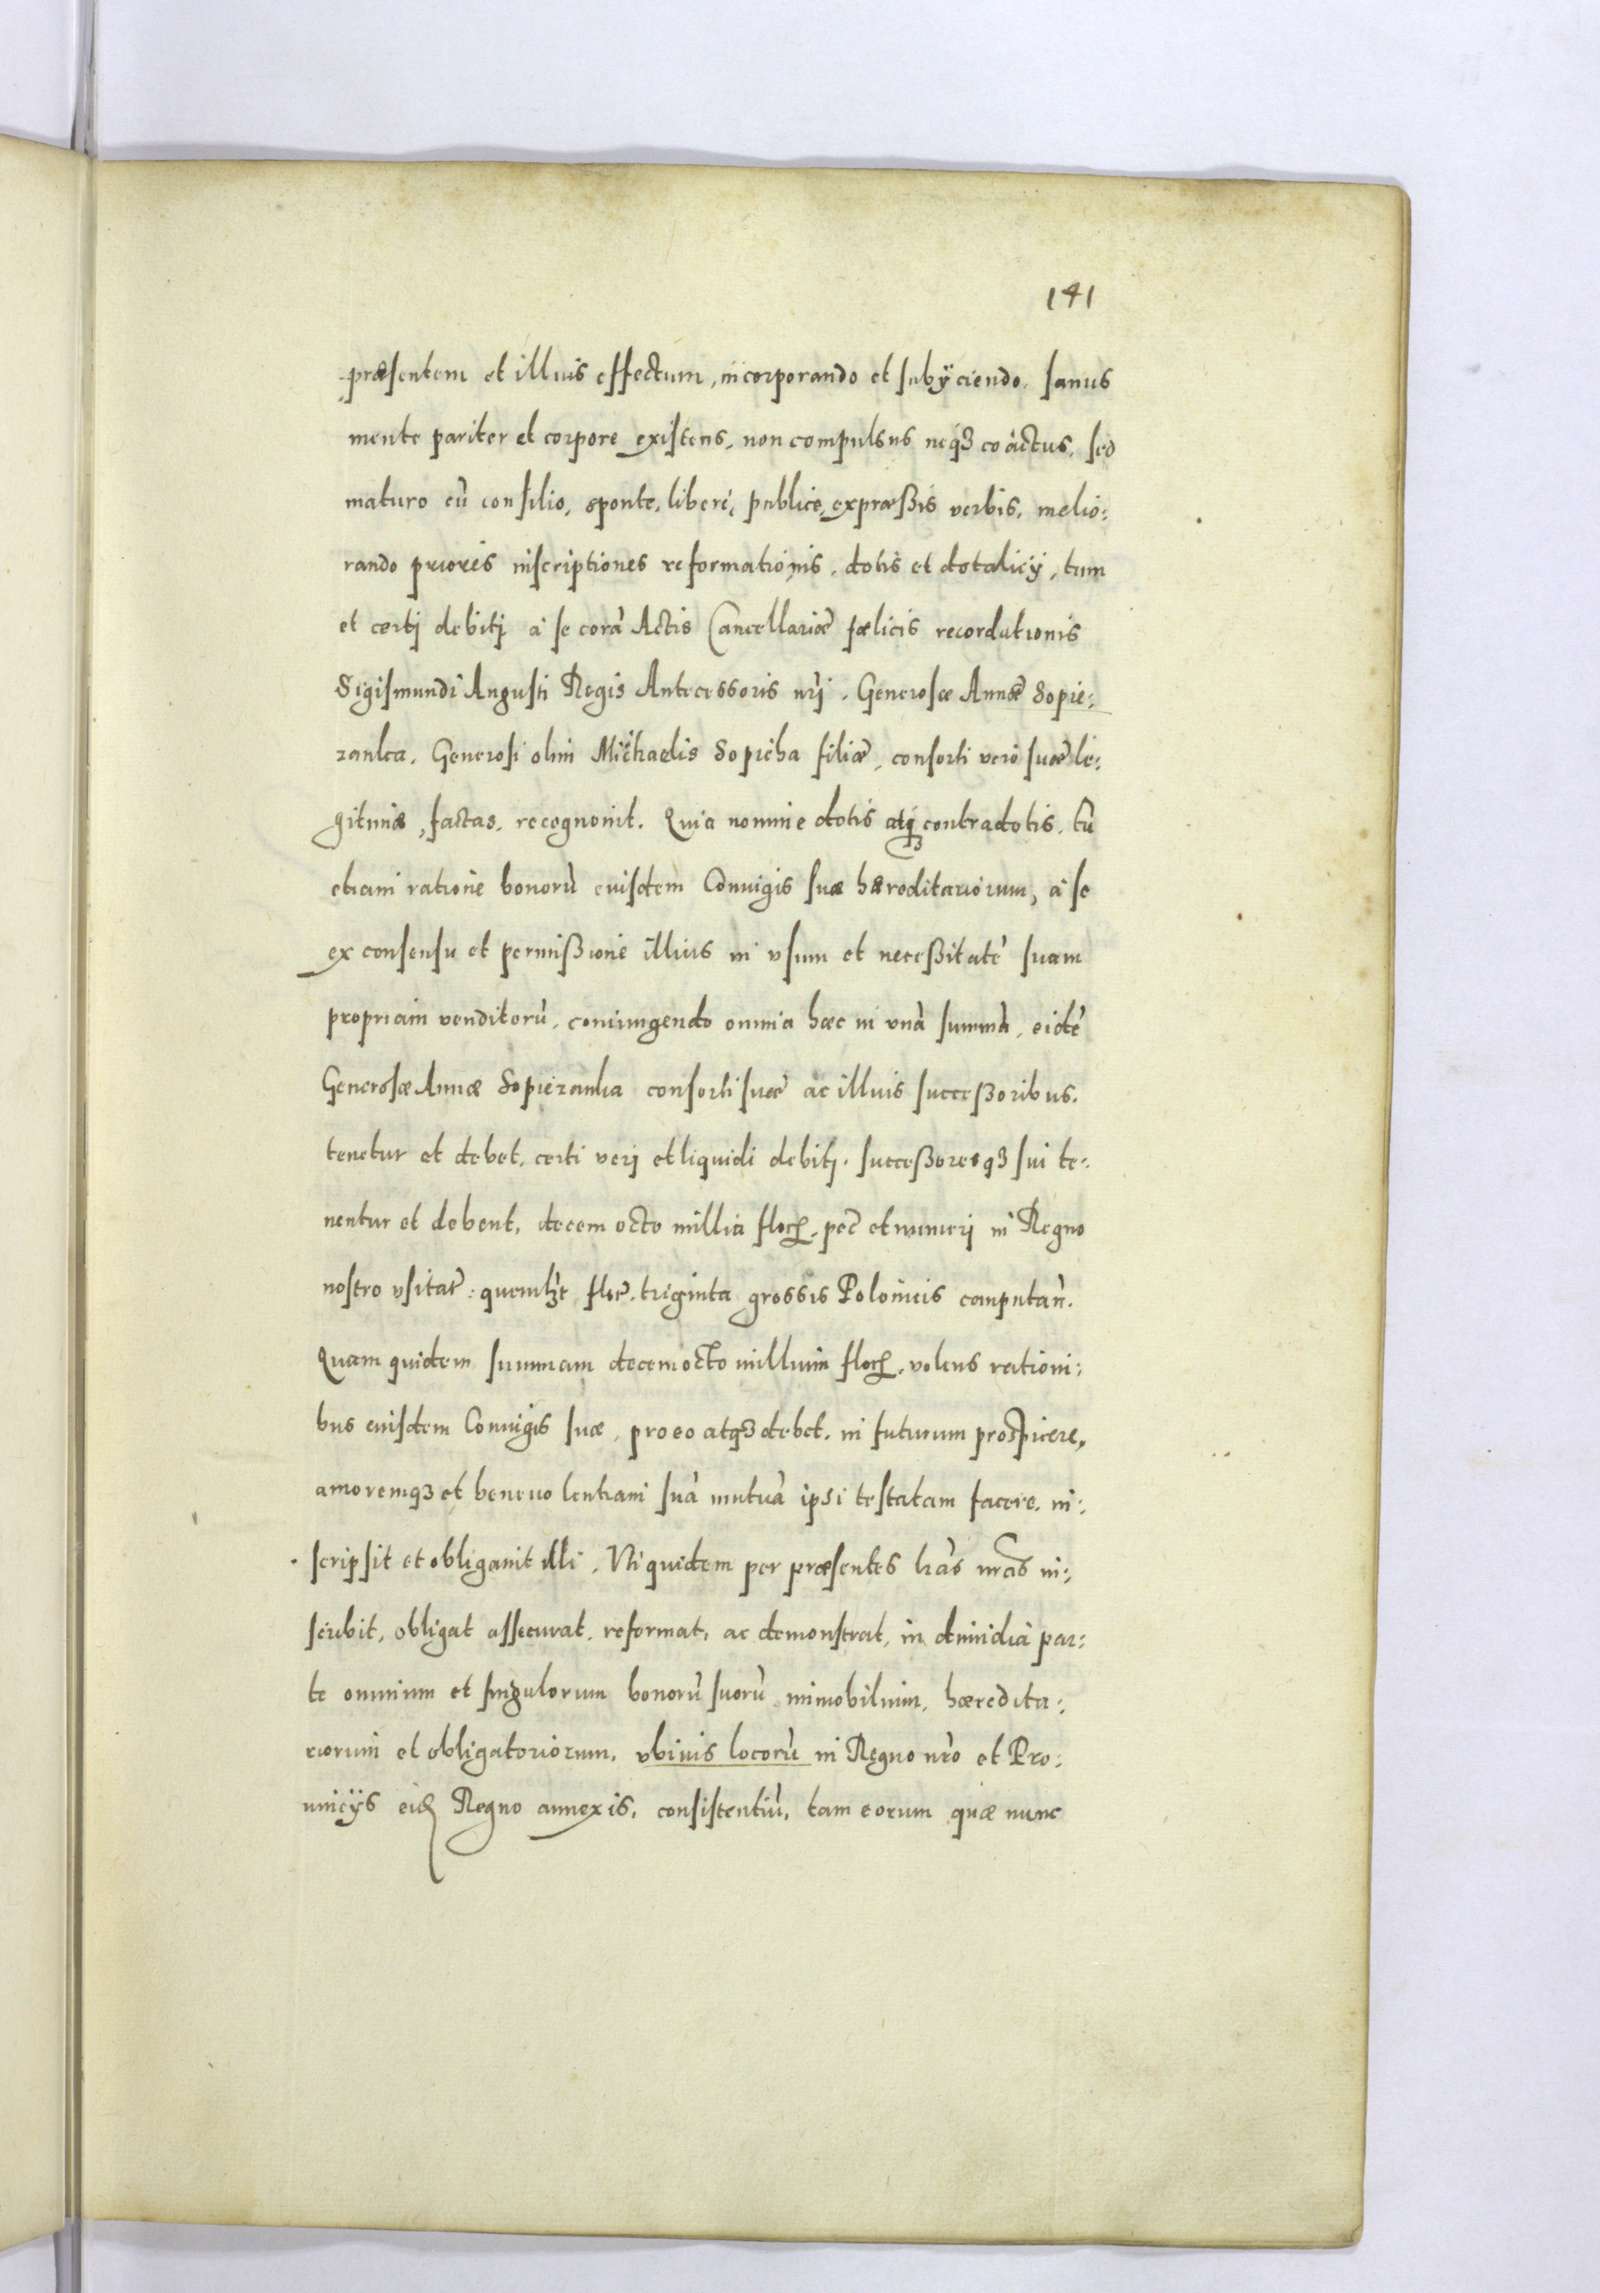 141
præsentem et illius effectum, incorporando et subÿciendo. sanus
mente pariter et corpore existens, non compulsus neqꝫ coactus, sed
maturo cũ consilio, sponte, liberè, publice, expræßis verbis, melio:
rando priores inscriptiones reformationis, dotis et dotalicÿ, tum
et certj debitj à se corã Actis Cancellariæ fælicis recordationis
Sigismundi Augusti Regis Antecessoris nr̃j. Generosæ Annæ Sopie:
zanka, Generosi olim Michaelis Sopieha filiæ, consorti verò suæ le:
gitimæ, factas, recognovit. Quia nomine dotis atqꝫ contradotis, tũ
etiam ratione bonorũ eiusdem Coniugis suæ hæreditariorum, à se
ex consensu et permißione illius in vsum et neceßitatẽ suam
propriam venditorũ, coniungendo omnia hæc in vnã summã, eidẽ
Generosæ Annæ Sopiezanka consorti suæ ac illius succeßoribus,
tenetur et debet, certi veri et liquidi debitj, succeßoresqꝫ sui te:
nentur et debent, decem octo millia floꝝ, pec̃ et numeri in Regno
nostro vsitat̃: quemlꝫt flor̃. triginta grossis Polonicis computan̄.
Quam quidem summam decem octo millium floꝝ, volens rationi:
bus eiusdem Coniugis suæ, pro eo atqꝫ debet, in futurum prospicere,
amoremqꝫ et beneuolentiam suã mutuã ipsi testatam facere, in:
scripsit et obligauit illi, Vti quidem per præsentes lr̃as nr̃as in:
scribit, obligat assecurat, reformat, ac demonstrat, in dimidia par:
te omnium et singulorum bonorũ suorũ immobilium, hæredita:
riorum et obligatoriorum, vbiuis locorũ in Regno nr̃o et Pro:
uincÿs eidẽ Regno annexis, consistentiũ, tam eorum quæ nunc